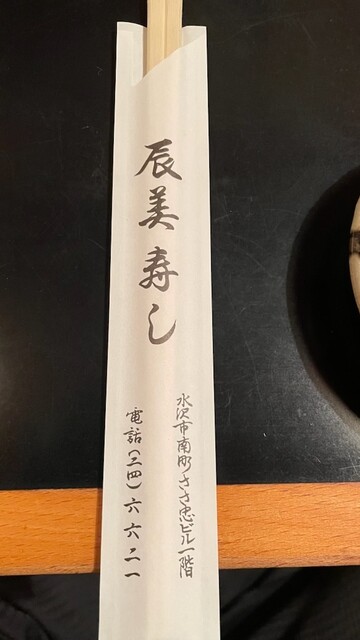 辰美寿し
水沢市南町ささ忠ビル一階
電話(二四)六六二一